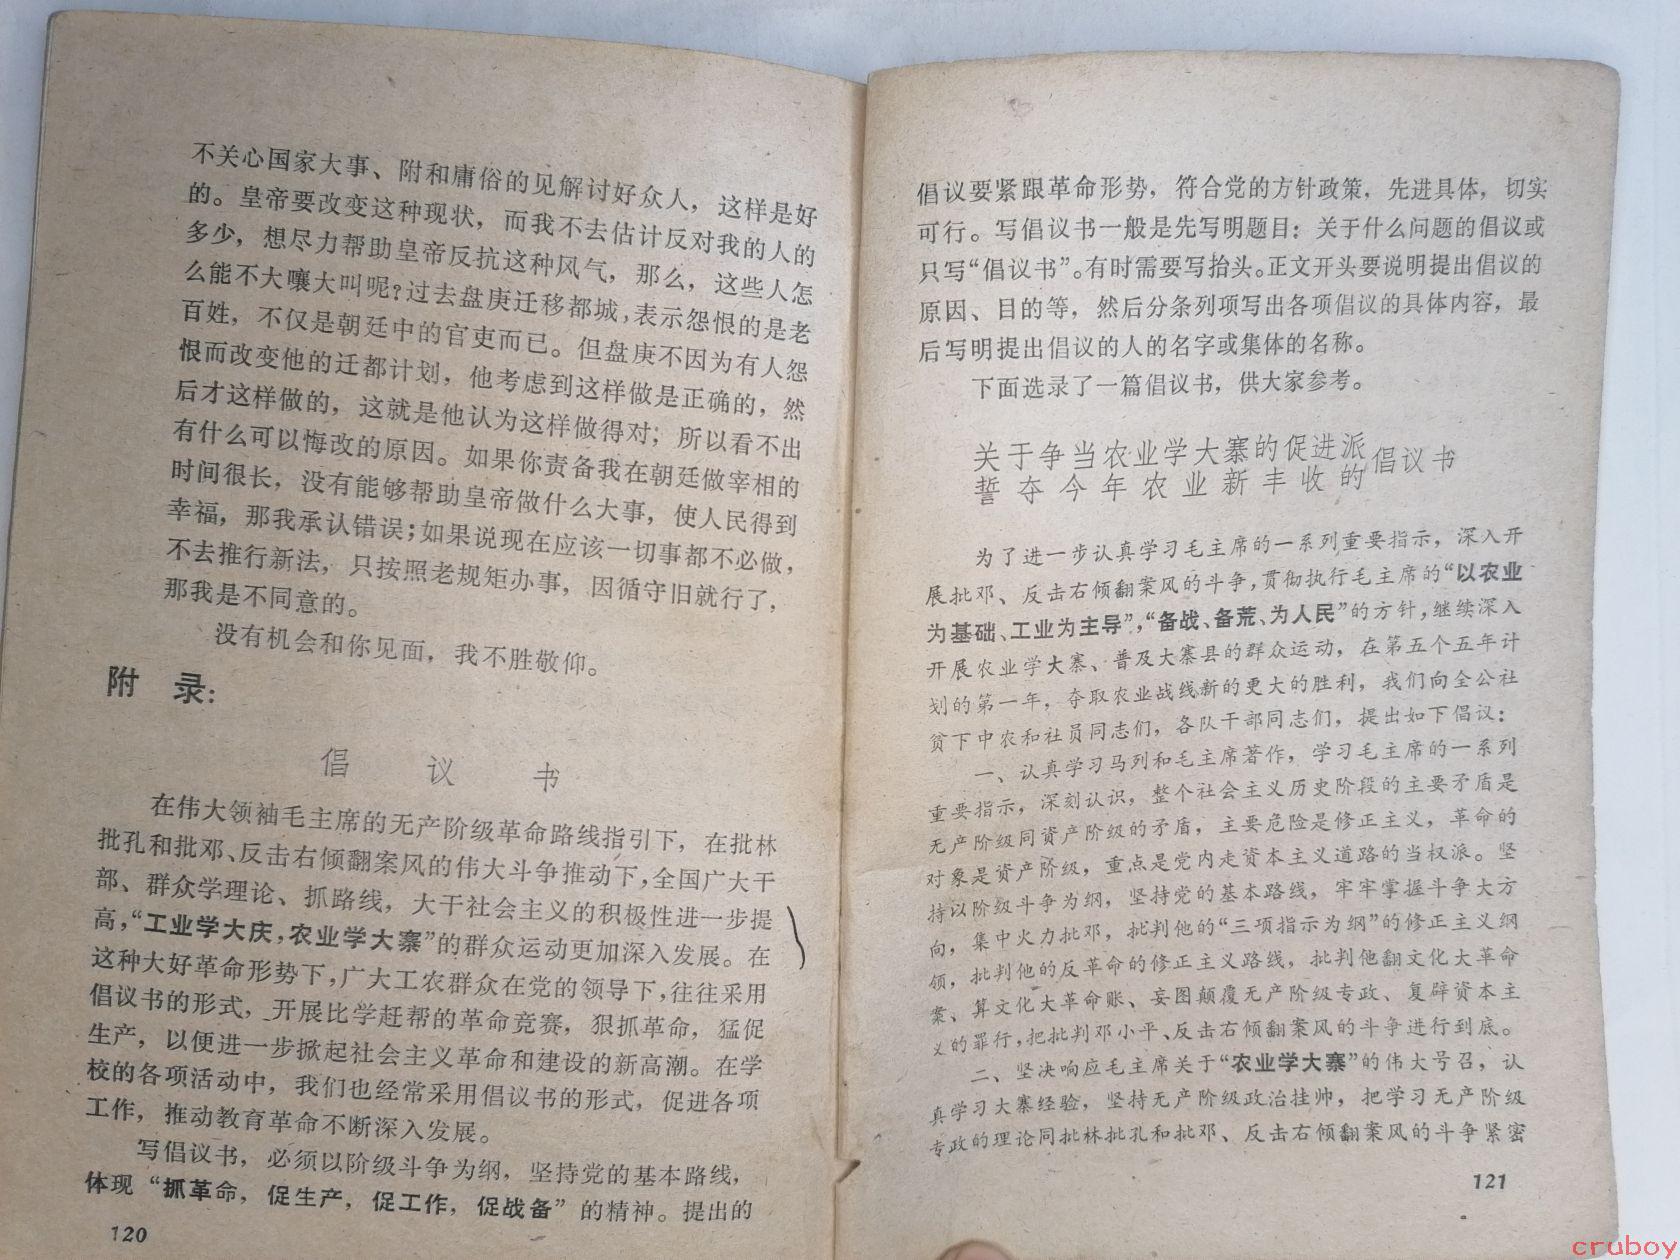 不关心国家大事、附和庸俗的见解讨好众人，这样是好
的。皇帝要改变这种现状，而我不去估计反对我的人的
多少，想尽力帮助皇帝反抗这种风气，那么，这些人怎
么能不大嚷大叫呢？过去盘庚迁移都城，表示怨恨的是老
百姓，不仅是朝廷中的官吏而已。但盘庚不因为有人怨
恨而改变他的迁都计划，他考虑到这样做是正确的，然
后才这样做的，这就是他认为这样做得对；所以看不出
有什么可以悔改的原因。如果你责备我在朝廷做宰相的
时间很长，没有能够帮助皇帝做什么大事，使人民得到
幸福，那我承认错误；如果说现在应该一切事都不必做，
不去推行新法，只按照老规矩办事，因循守旧就行了，
那我是不同意的。
没有机会和你见面，我不胜敬仰。
附 录：
倡 议 书
在伟大领袖毛主席的无产阶级革命路线指引下，在批林
批孔和批邓、反击右倾翻案风的伟大斗争推动下，全国广大干
部、群众学理论、抓路线，大干社会主义的积极性进一步提
高，“工业学大庆，农业学大寨”的群众运动更加深入发展。在
这种大好革命形势下，广大工农群众在党的领导下，往往采用
倡议书的形式，开展比学赶帮的革命竞赛，狠抓革命，猛促
生产，以便进一步掀起社会主义革命和建设的新高潮。在学
校的各项活动中，我们也经常采用倡议书的形式，促进各项
工作，推动教育革命不断深入发展。
写倡议书，必须以阶级斗争为纲，坚持党的基本路线，
体现“抓革命，促生产，促工作，促战备”的精神。提出的
120
倡议要紧跟革命形势，符合党的方针政策，先进具体，切实
可行。写倡议书一般是先写明题目：关于什么问题的倡议或
只写“倡议书”。有时需要写抬头。正文开头要说明提出倡议的
原因、目的等，然后分条列项写出各项倡议的具体内容，最
后写明提出倡议的人的名字或集体的名称。
下面选录了一篇倡议书，供大家参考。
关于争当农业学大寨的促进派
誓夺今年农业新丰收的倡议书
为了进一步认真学习毛主席的一系列重要指示，深入开
展批邓、反击右倾翻案风的斗争，贯彻执行毛主席的“以农业
为基础、工业为主导”，“备战、备荒、为人民”的方针，继续深入
开展农业学大寨、普及大寨县的群众运动，在第五个五年计
划的第一年，夺取农业战线新的更大的胜利，我们向全公社
贫下中农和社员同志们，各队干部同志们，提出如下倡议：
一、认真学习马列和毛主席著作，学习毛主席的一系列
重要指示，深刻认识，整个社会主义历史阶段的主要矛盾是
无产阶级同资产阶级的矛盾，主要危险是修正主义，革命的
对象是资产阶级，重点是党内走资本主义道路的当权派。坚
持以阶级斗争为纲，坚持党的基本路线，牢牢掌握斗争大方
向，集中火力批邓，批判他的“三项指示为纲”的修正主义纲
领，批判他的反革命的修正主义路线，批判他翻文化大革命
案、算文化大革命账、妄图颠覆无产阶级专政、复辟资本主
义的罪行，把批判邓小平、反击右倾翻案风的斗争进行到底。
二、坚决响应毛主席关于“农业学大寨”的伟大号召，认
真学习大寨经验，坚持无产阶级政治挂帅，把学习无产阶级
专政的理论同批林批孔和批邓、反击右倾翻案风的斗争紧密
121
cruboy